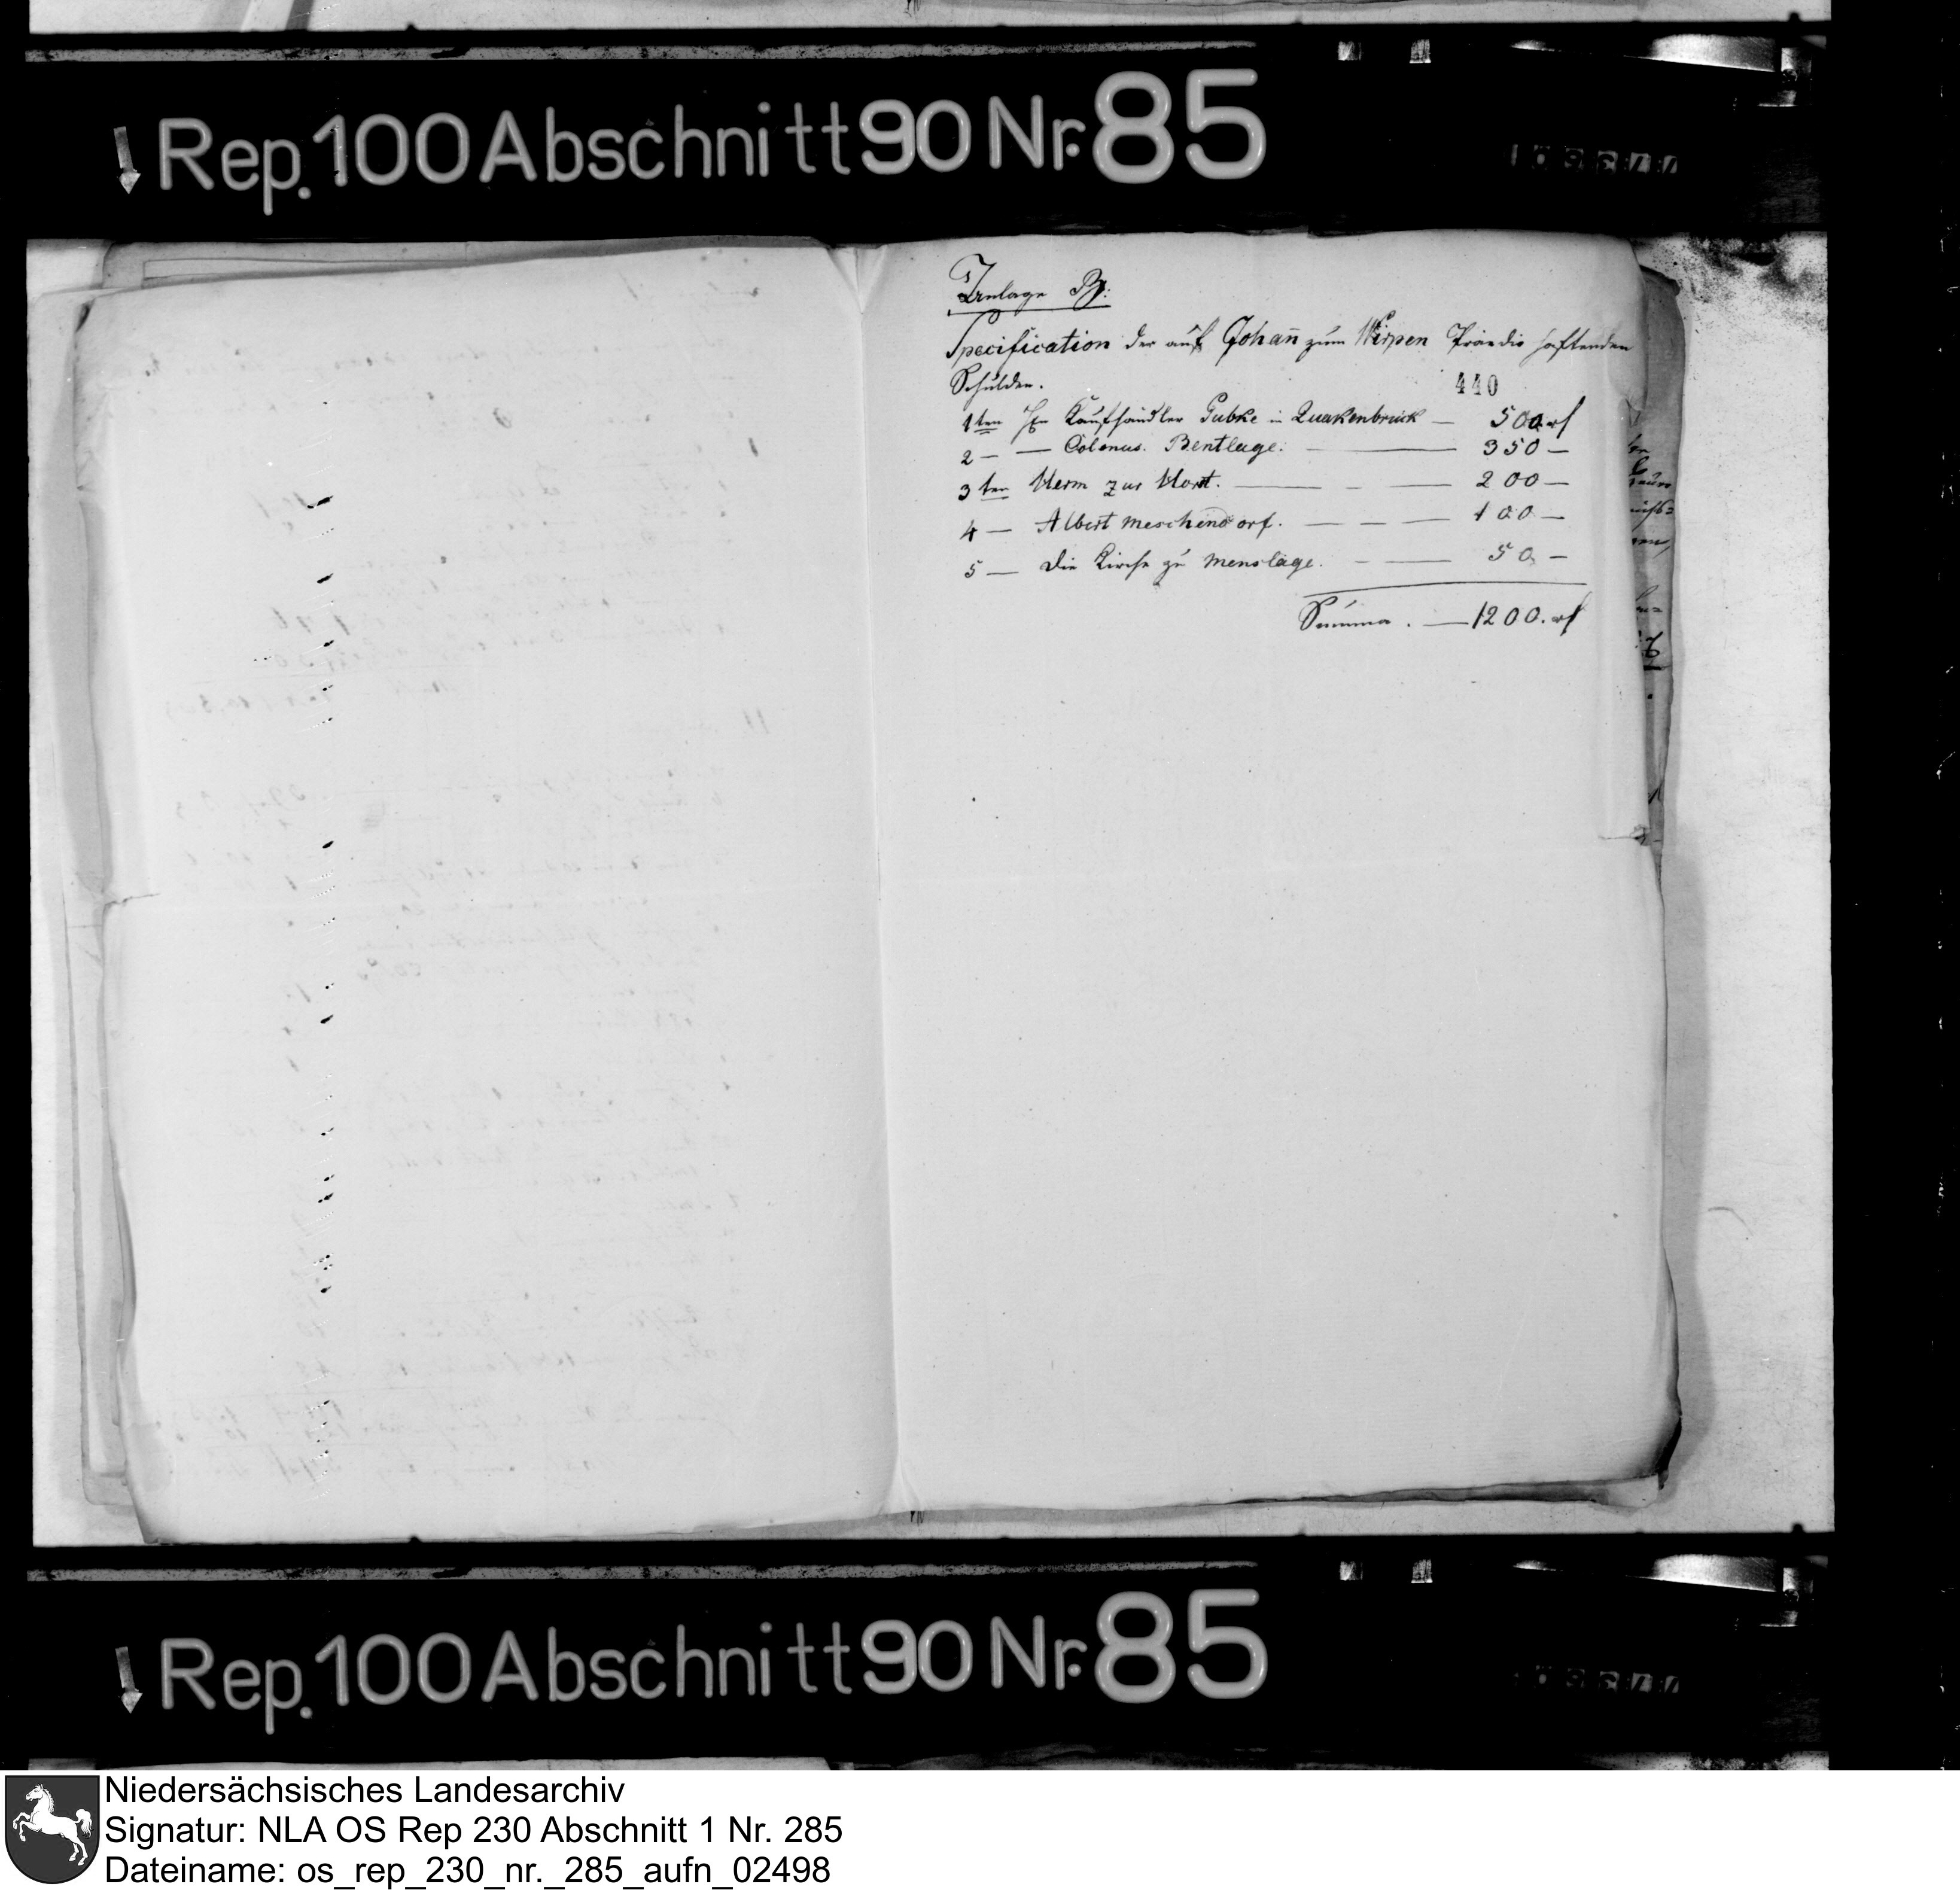 Rep. 100 Abschnitt 90 Nr. 85
Anlage B:
Specification der auf Johan̄ zum Wirpen Praedio haftenden
Schulden.
440
1ten Hn Kaufhändler Gubke in Quakenbrück — 500 rf
2 — — Colonus. Bentlage: — 350 —
3ten Herm zur Horst. — — — 200 —
4 — Albert Meschendorf. — — — 100 —
5 — die Kirche zu Menslage. — — 50 —
Summa. — 1200. rf
Rep. 100 Abschnitt 90 Nr. 85
Niedersächsisches Landesarchiv
Signatur: NLA OS Rep 230 Abschnitt 1 Nr. 285
Dateiname: os_rep_230_nr._285_aufn_02498